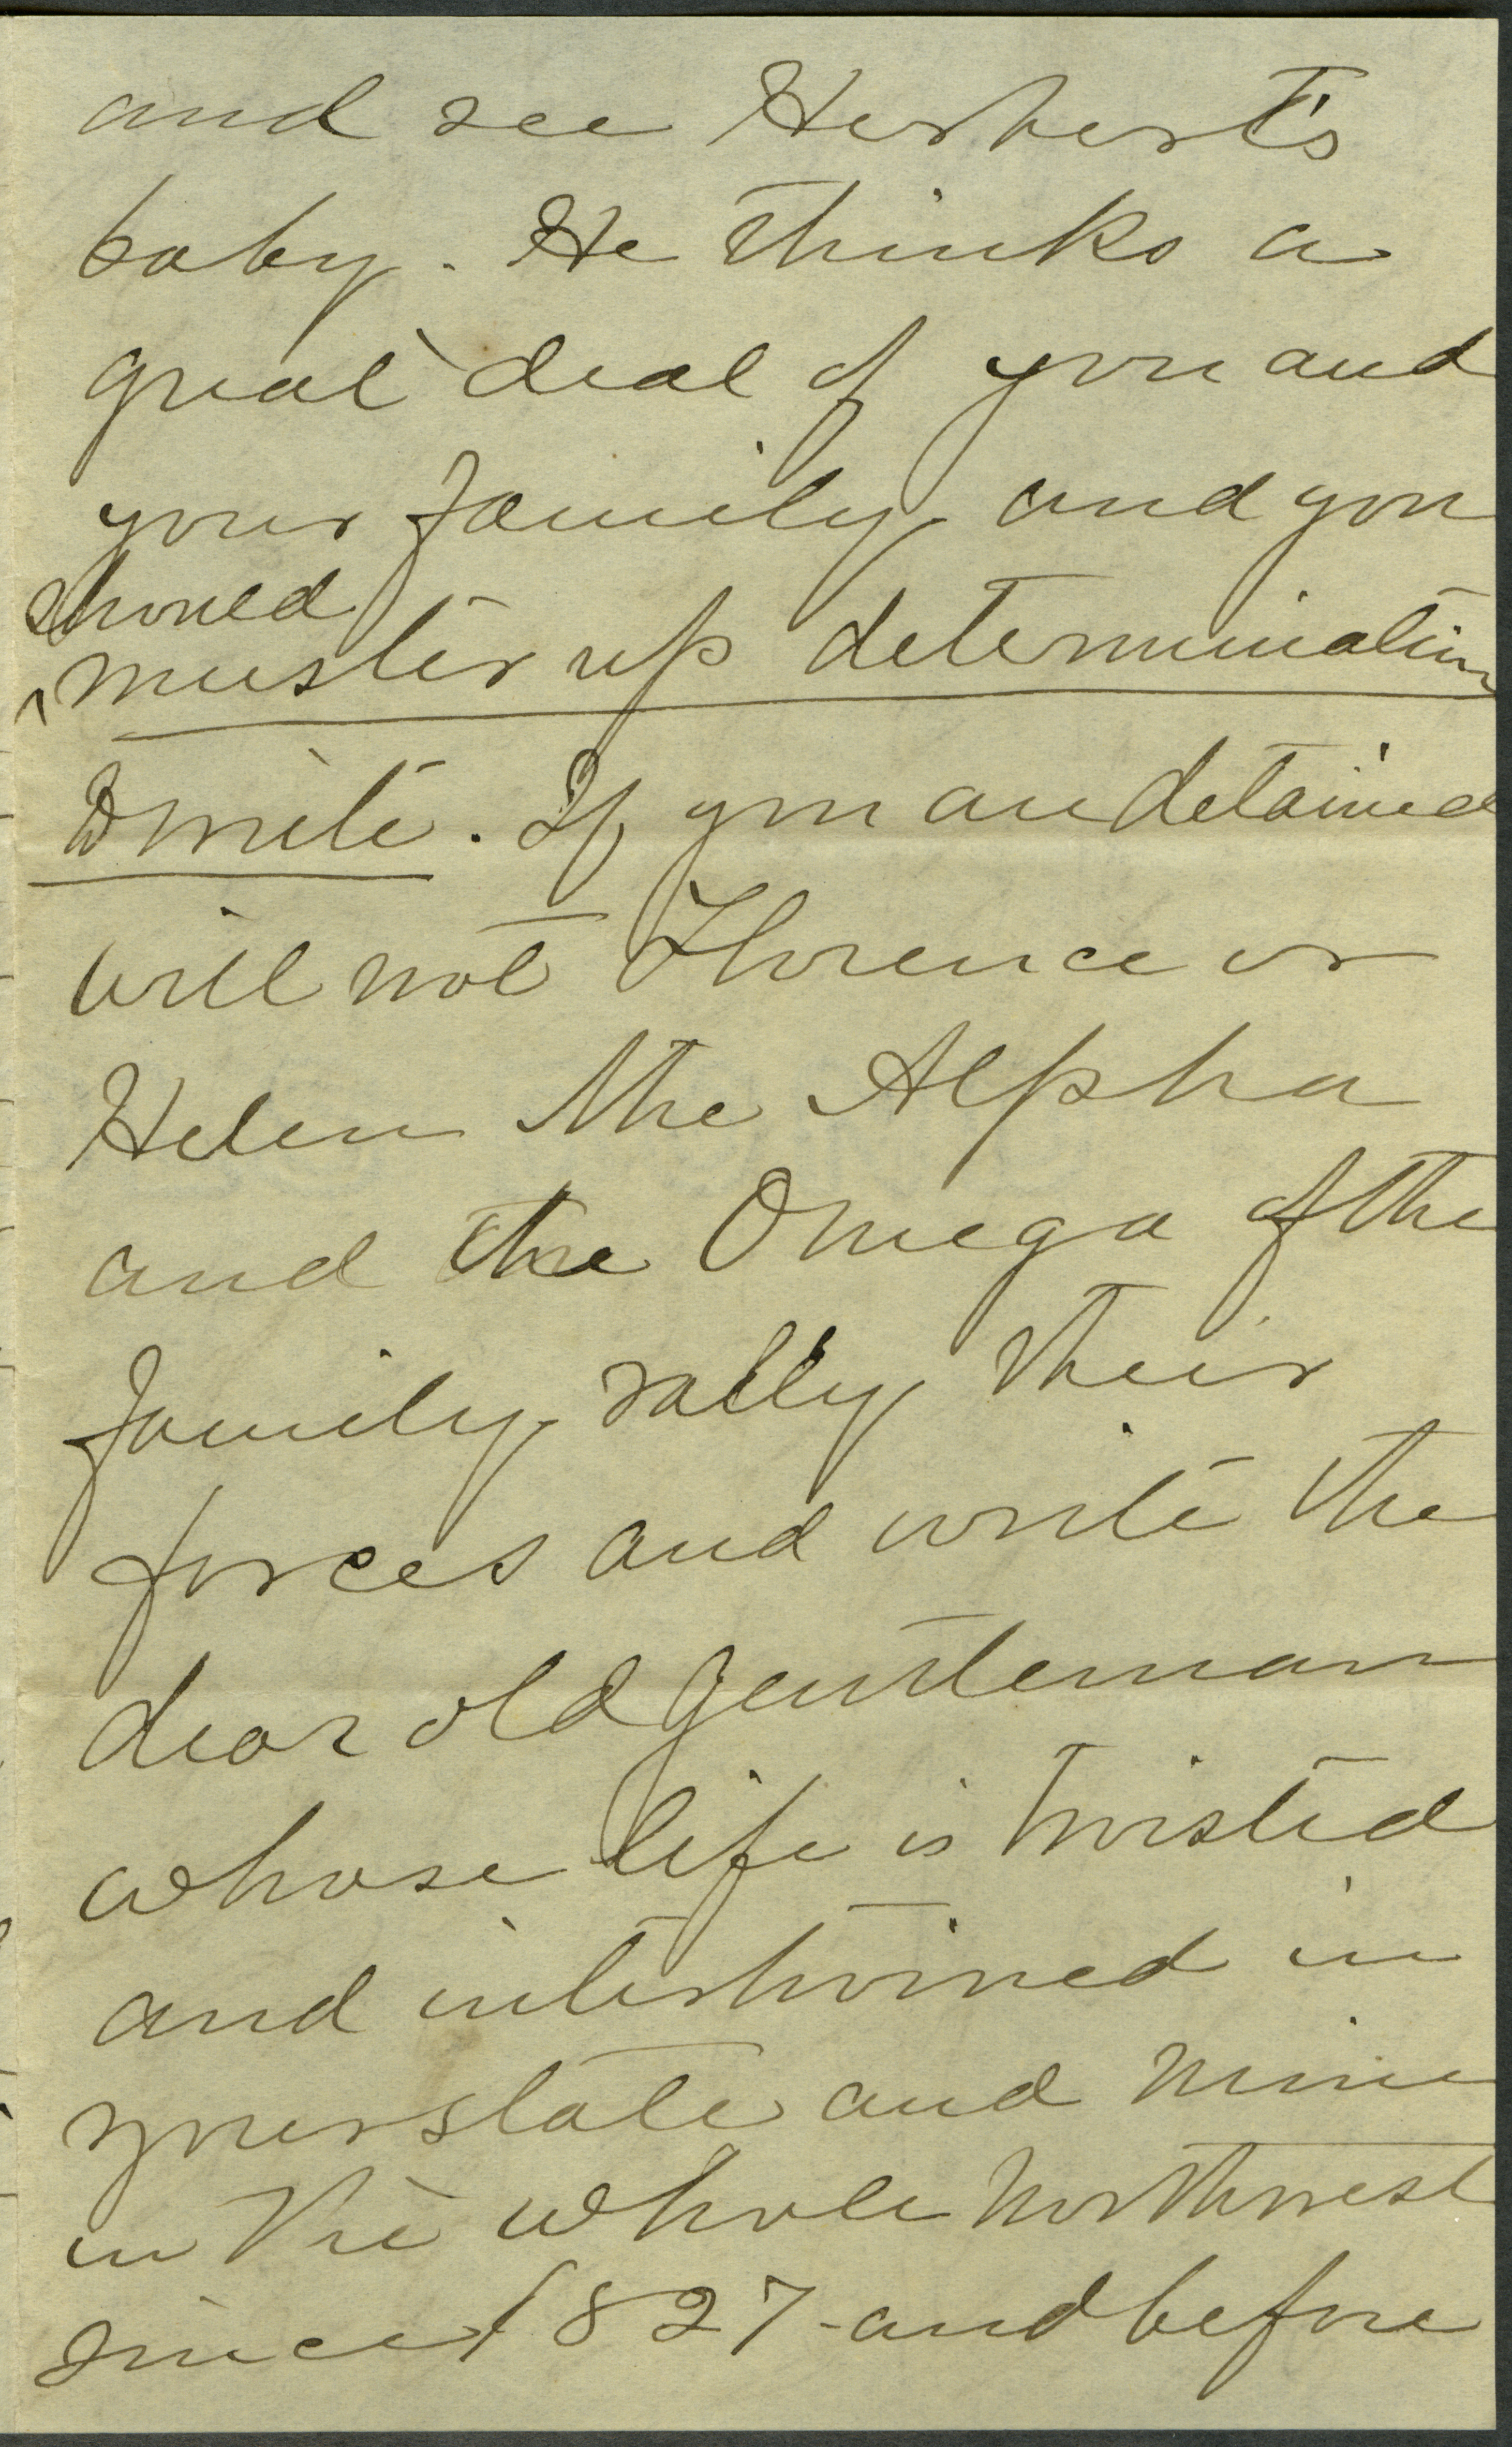 and see Herbert's
baby. He thinks a
great deal of you and
your family and you
should
^muster up determination
to write. If you are detained
will not Florence or
Helen the Alpha
and the Omega of the
family, rally their
forces and write the
dear old gentleman
whose life is twisted
and intertwined in
your state and mine
in the whole northwest
since 1827 - and before